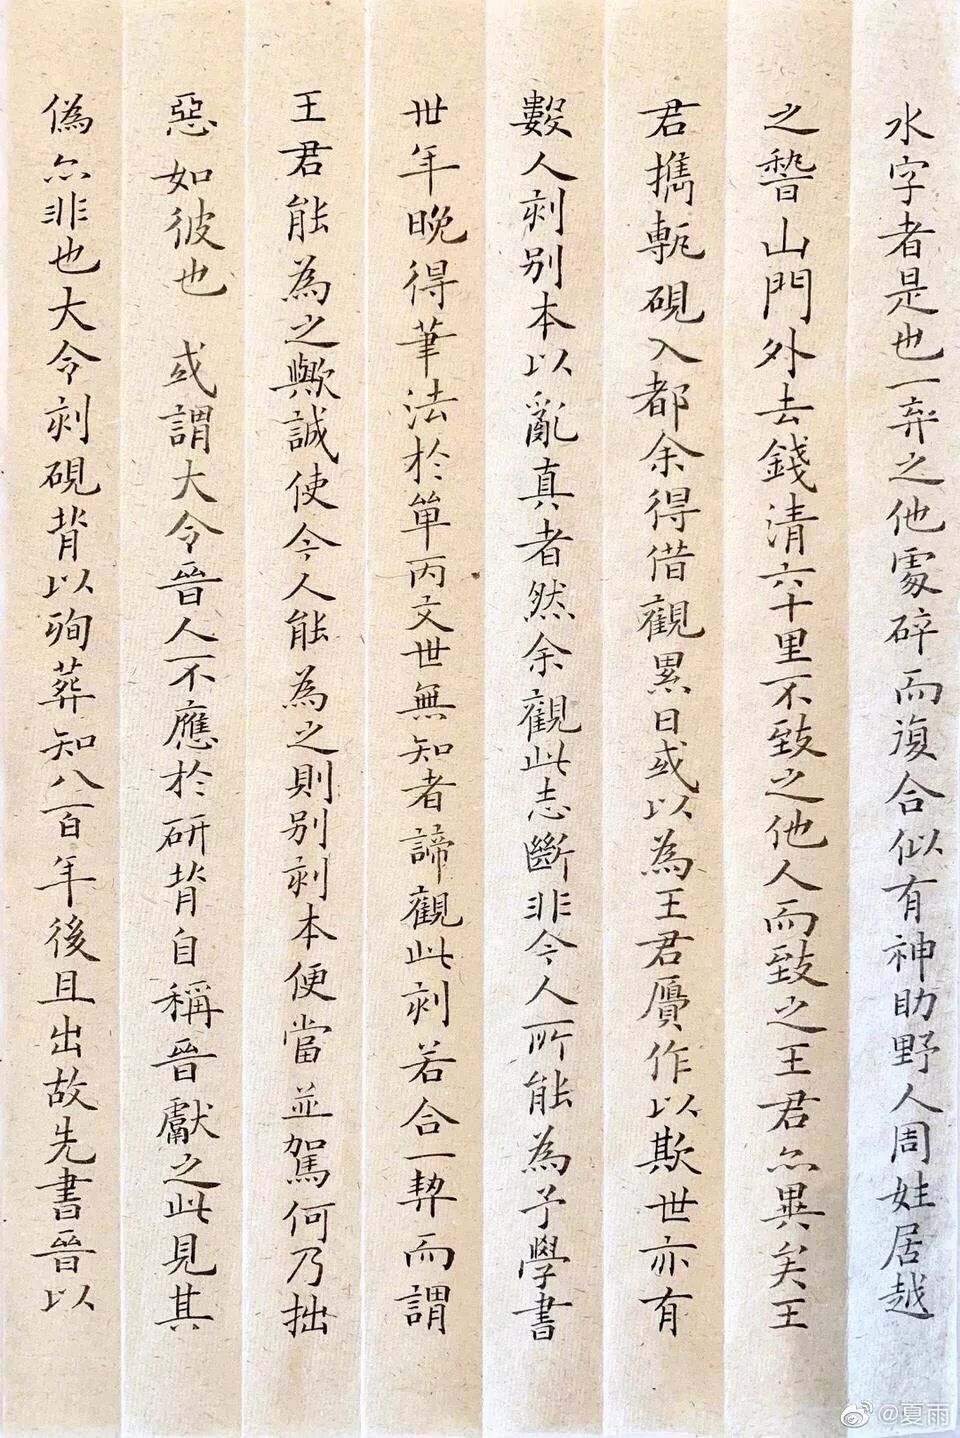 水字者是也一弃之他處碎而復合似有神助野人周姓居越
之嵆山門外去錢清六十里不致之他人而致之王君亦異矣王
君攜甎硯入都余得借觀累日或以為王君贋作以欺世亦有
數人刻别本以亂真者然余觀此志斷非今人所能為予學書
丗年晚得筆法於單丙文世無知者諦觀此刻若合一契而謂
王君能為之歟誠使今人能為之則别刻本便當並駕何乃拙
惡如彼也 或謂大令晉人不應於研背自稱晉獻之此見其
偽亦非也大令刻硯背以殉葬知八百年後且出故先書晉以
@夏雨